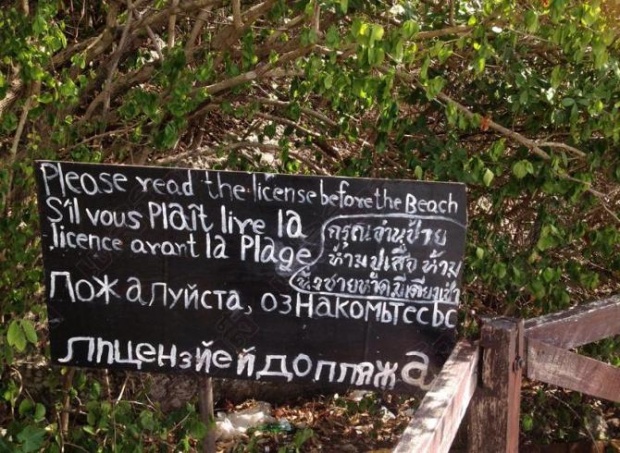 Please read the license before the Beach
S'il vous Plaît lire la
licence avant la Plage
กรุณาอ่านป้าย
ห้ามปูเสื่อ ห้าม
Пожалуйста, ознакомьтесьс
Лицензйейдопляжа